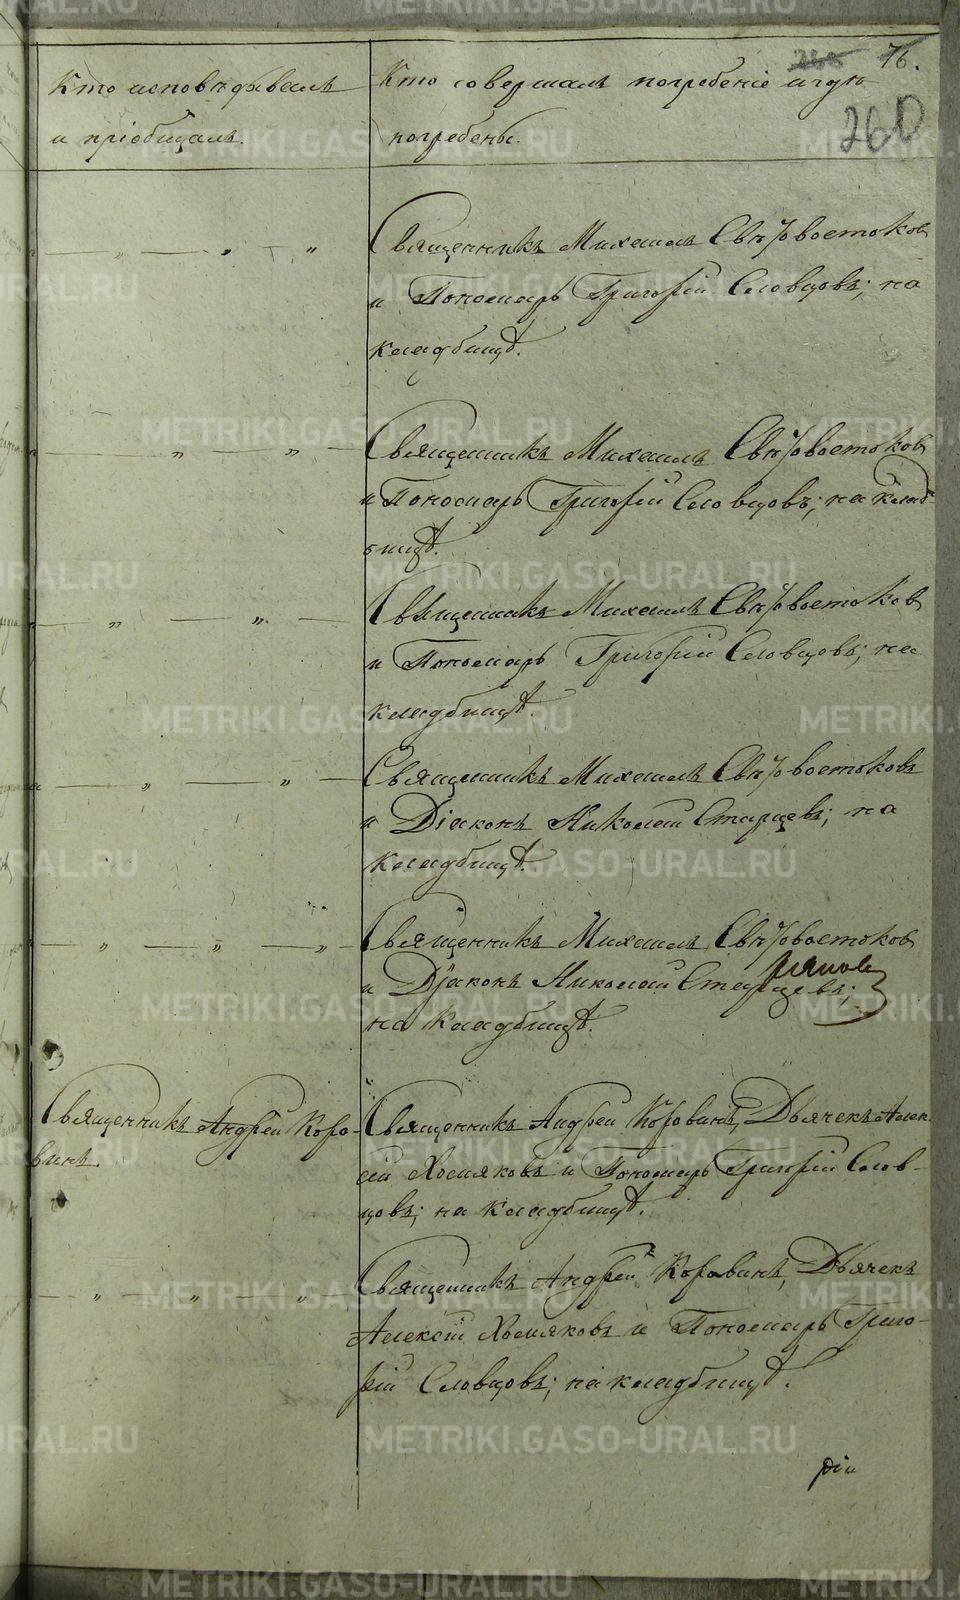 76.
260
Кто исповѣдывалъ
и пріобщалъ.
Кто совершалъ погребеніе и гдѣ
погребены.
— „ — „ — „
Священникъ Михаилъ Свѣтовостоковъ
и Пономарь Григорій Словцовъ; на
кладбищѣ.
— „ — „ —
Священникъ Михаилъ Свѣтовостоковъ
и Пономарь Григорій Словцовъ; на клад-
бищѣ.
— „ — „ —
Священникъ Михаилъ Свѣтовостоковъ
и Пономарь Григорій Словцовъ; на
кладбищѣ.
— „ — „ —
Священникъ Михаилъ Свѣтовостоковъ
и Діаконъ Николай Старцевъ; на
кладбищѣ.
— „ — „ — „ —
Священникъ Михаилъ Свѣтовостоковъ
и Діаконъ Николай Старцевъ;
на кладбищѣ.
Священникъ Андрей Коро-
винъ.
Священникъ Андрей Коровинъ, Дьячекъ Алек-
сѣй Хомяковъ и Пономарь Григорій Слов-
цовъ; на кладбищѣ.
— „ — „ — „
Священникъ Андрей Коровинъ, Дьячекъ
Алексѣй Хомяковъ и Пономарь Григо-
рій Словцовъ; на кладбищѣ.
METRIKI.GASO-URAL.RU